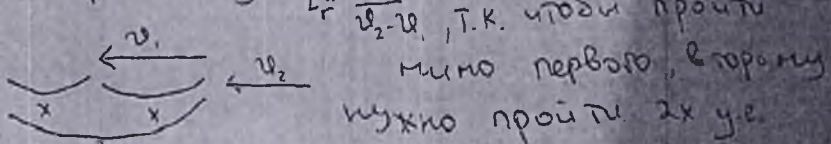 t_г υ₂-υ₁, т.к. чтобы пройти
υ₁ υ₂ мимо первого, второму
x x нужно пройти 2x у.е.